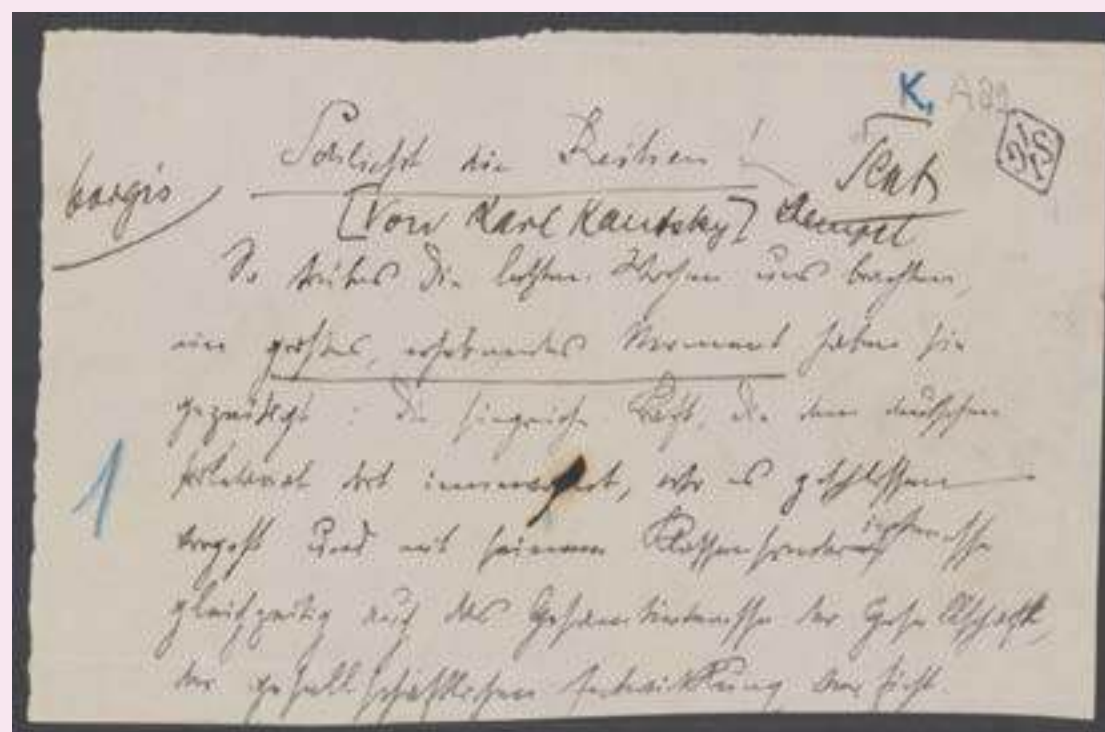 K, A 89
Schließt die Reihen!
borgis
[Von Karl Kautsky]
So Trübes die letzten Wochen uns brachten,
ein großes, erhebendes Moment haben sie
gezeitigt: die siegreiche Kraft, die dem deutschen
Proletariat dort innewohnt, wo es geschlossen
vorgeht und mit seinem Klassensonderinteresse
gleichzeitig auch das Gesamtinteresse der Gesellschaft,
der gesellschaftlichen Entwicklung verficht.
1